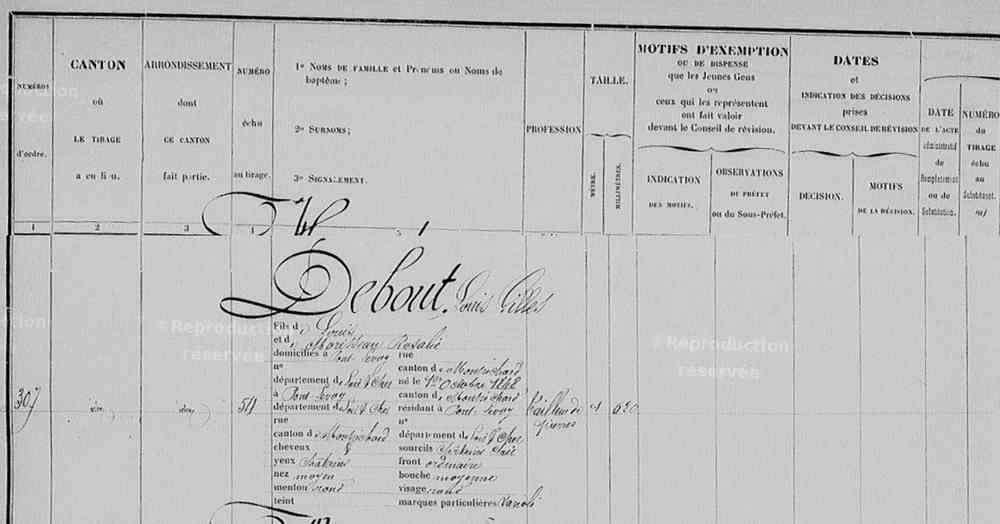 NUMÉROS
d'ordre.
CANTON
où
LE TIRAGE
a eu lieu.
ARRONDISSEMENT
dont
CE CANTON
fait partie.
NUMÉRO
échu
au tirage.
1° NOMS DE FAMILLE et Prénoms ou Noms de
baptême ;
2° SURNOMS;
3° SIGNALEMENT.
PROFESSION
TAILLE.
MÈTRE.
MILLIMÈTRES.
MOTIFS D'EXEMPTION
OU DE DISPENSE
que les Jeunes Gens
ou
ceux qui les représentent
ont fait valoir
devant le Conseil de révision.
INDICATION
DES MOTIFS.
OBSERVATIONS
DU PRÉFET
ou du Sous-Préfet.
DATES
et
INDICATION DES DÉCISIONS
prises
DEVANT LE CONSEIL DE RÉVISION
DÉCISION.
MOTIFS
DE LA DÉCISION.
DATE
DE L'ACTE
administratif
de
Remplacement
ou de
Substitution.
NUMÉRO
du
TIRAGE
échu
au
Substituant.
1 2 3 5
Debout, Louis Gilles
Fils de Louis
et de Morisseau Rosalie
domiciliés à Pont levoy rue
n° canton de Montrichard
département de Loir & Cher né le 1er Octobre 1848
à Pont Levoy canton de Montrichard
département de Loir & Cher résidant à Pont levoy
rue n°
canton de Montrichard département de Loir & Cher
cheveux & sourcils Châtains
yeux Châtains front ordinaire
nez moyen bouche moyenne
menton rond visage rond
teint marques particulières
307
54
Tailleur de
pierres
1 690
©Reproduction
réservée
©Reproduction
réservée